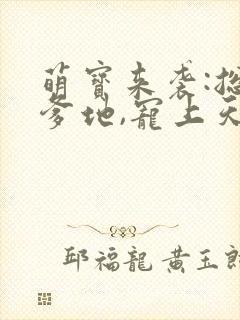 萌寶來袭:总
爹地,寵上天
邱福龍 黄玉郎